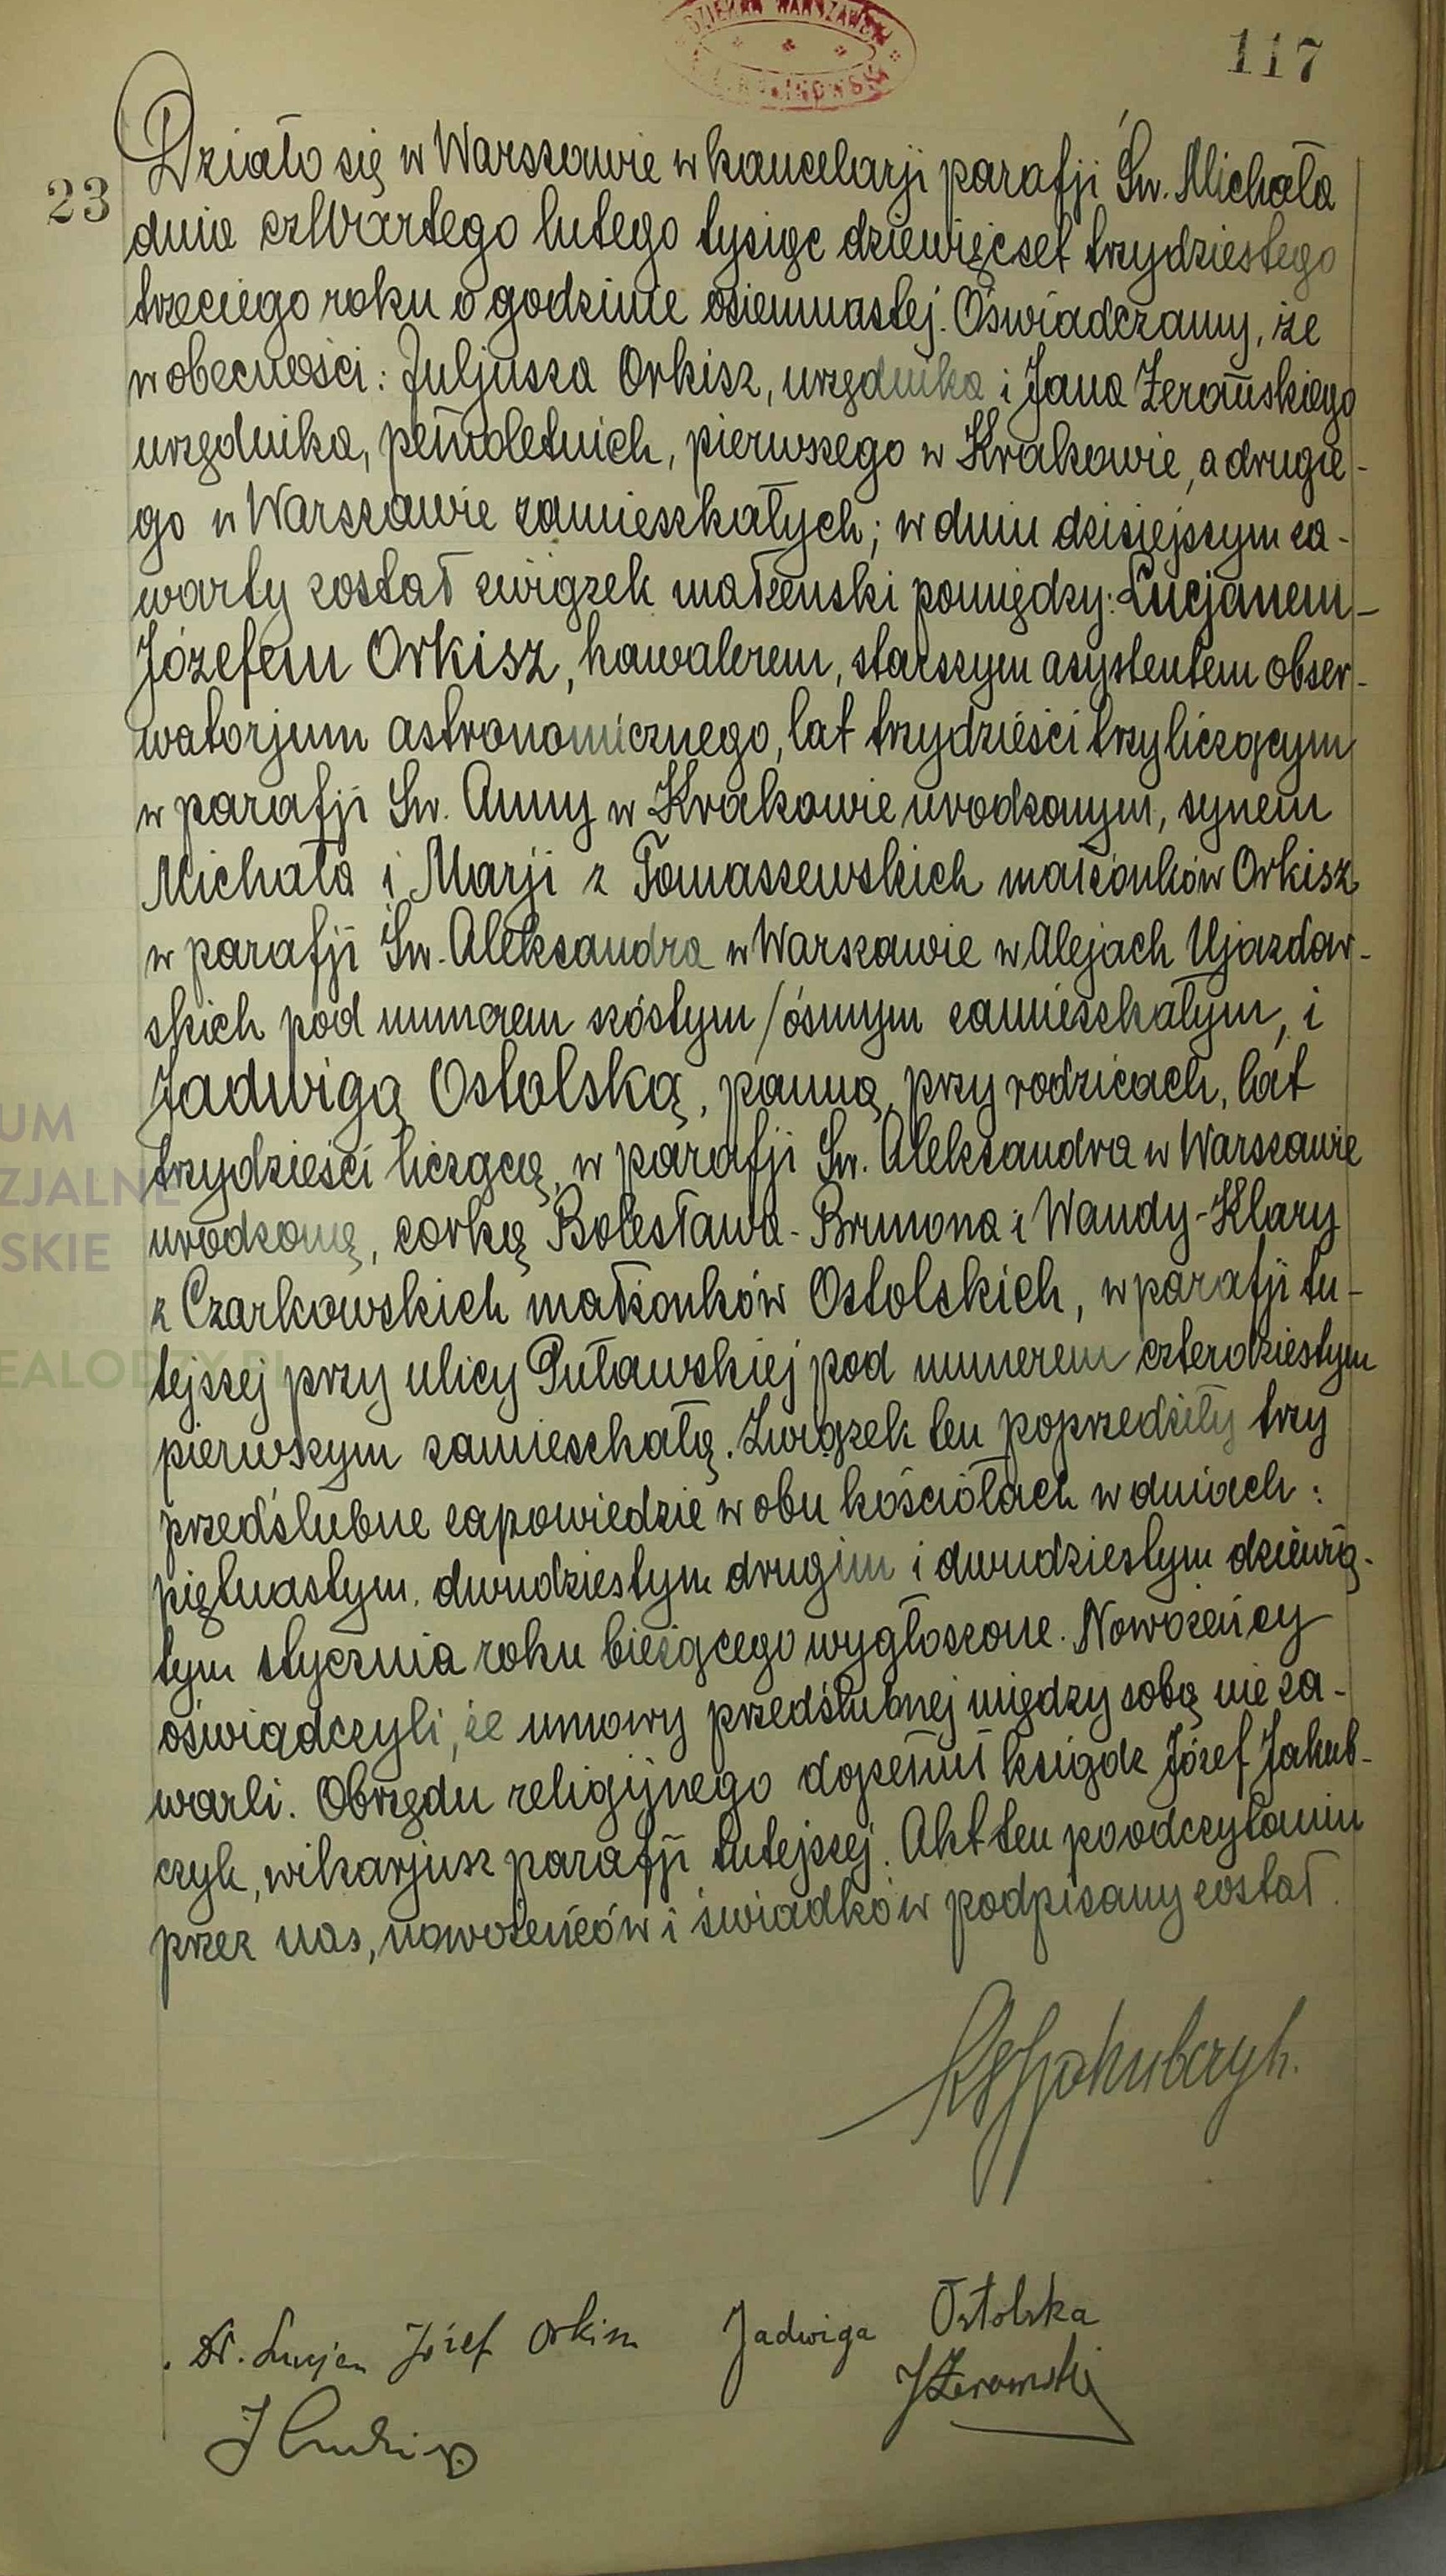 117
23
Działo się w Warszawie w kancelarji parafji Św. Michała
dnia czwartego lutego tysiąc dziewięćset trzydziestego
trzeciego roku o godzinie osiemnastej. Oświadczamy, że
w obecności: Juljusza Orkisz, urzędnika i Jana Żerańskiego
urzędnika, pełnoletnich, pierwszego w Krakowie, a drugie-
go w Warszawie zamieszkałych; w dniu dzisiejszym za-
warty został związek małżeński pomiędzy: Łucjanem-
Józefem Orkisz, kawalerem, starszym asystentem obser-
watorjum astronomicznego, lat trzydzieści trzy liczącym
w parafji Św. Anny w Krakowie urodzonym, synem
Michała i Marji z Tomaszewskich małżonków Orkisz
w parafji Św. Aleksandra w Warszawie w Alejach Ujazdow-
skich pod numerem szóstym/ósmym zamieszkałym, i
Jadwigą Ostolską, panną, przy rodzicach, lat
trzydzieści liczącą, w parafji Św. Aleksandra w Warszawie
urodzoną, córką Bolesława-Brunona i Wandy-Klary
z Czarkowskich małżonków Ostolskich, w parafji tu-
tejszej przy ulicy Puławskiej pod numerem czterdziestym
pierwszym zamieszkałą. Związek ten poprzedziły trzy
przedślubne zapowiedzie w obu kościołach w dniach:
piętnastym, dwudziestym drugim i dwudziestym dziewią-
tym stycznia roku bieżącego wygłoszone. Nowożeńcy
oświadczyli, że umowy przedślubnej między sobą nie za-
warli. Obrzędu religijnego dopełnił ksiądz Józef Jakub-
czyk, wikarjusz parafji tutejszej. Akt ten po odczytaniu
przez nas, nowożeńców i świadków podpisany został.
Ks J Jakubczyk.
Dr. Lucjan Józef Orkisz Jadwiga Ostolska